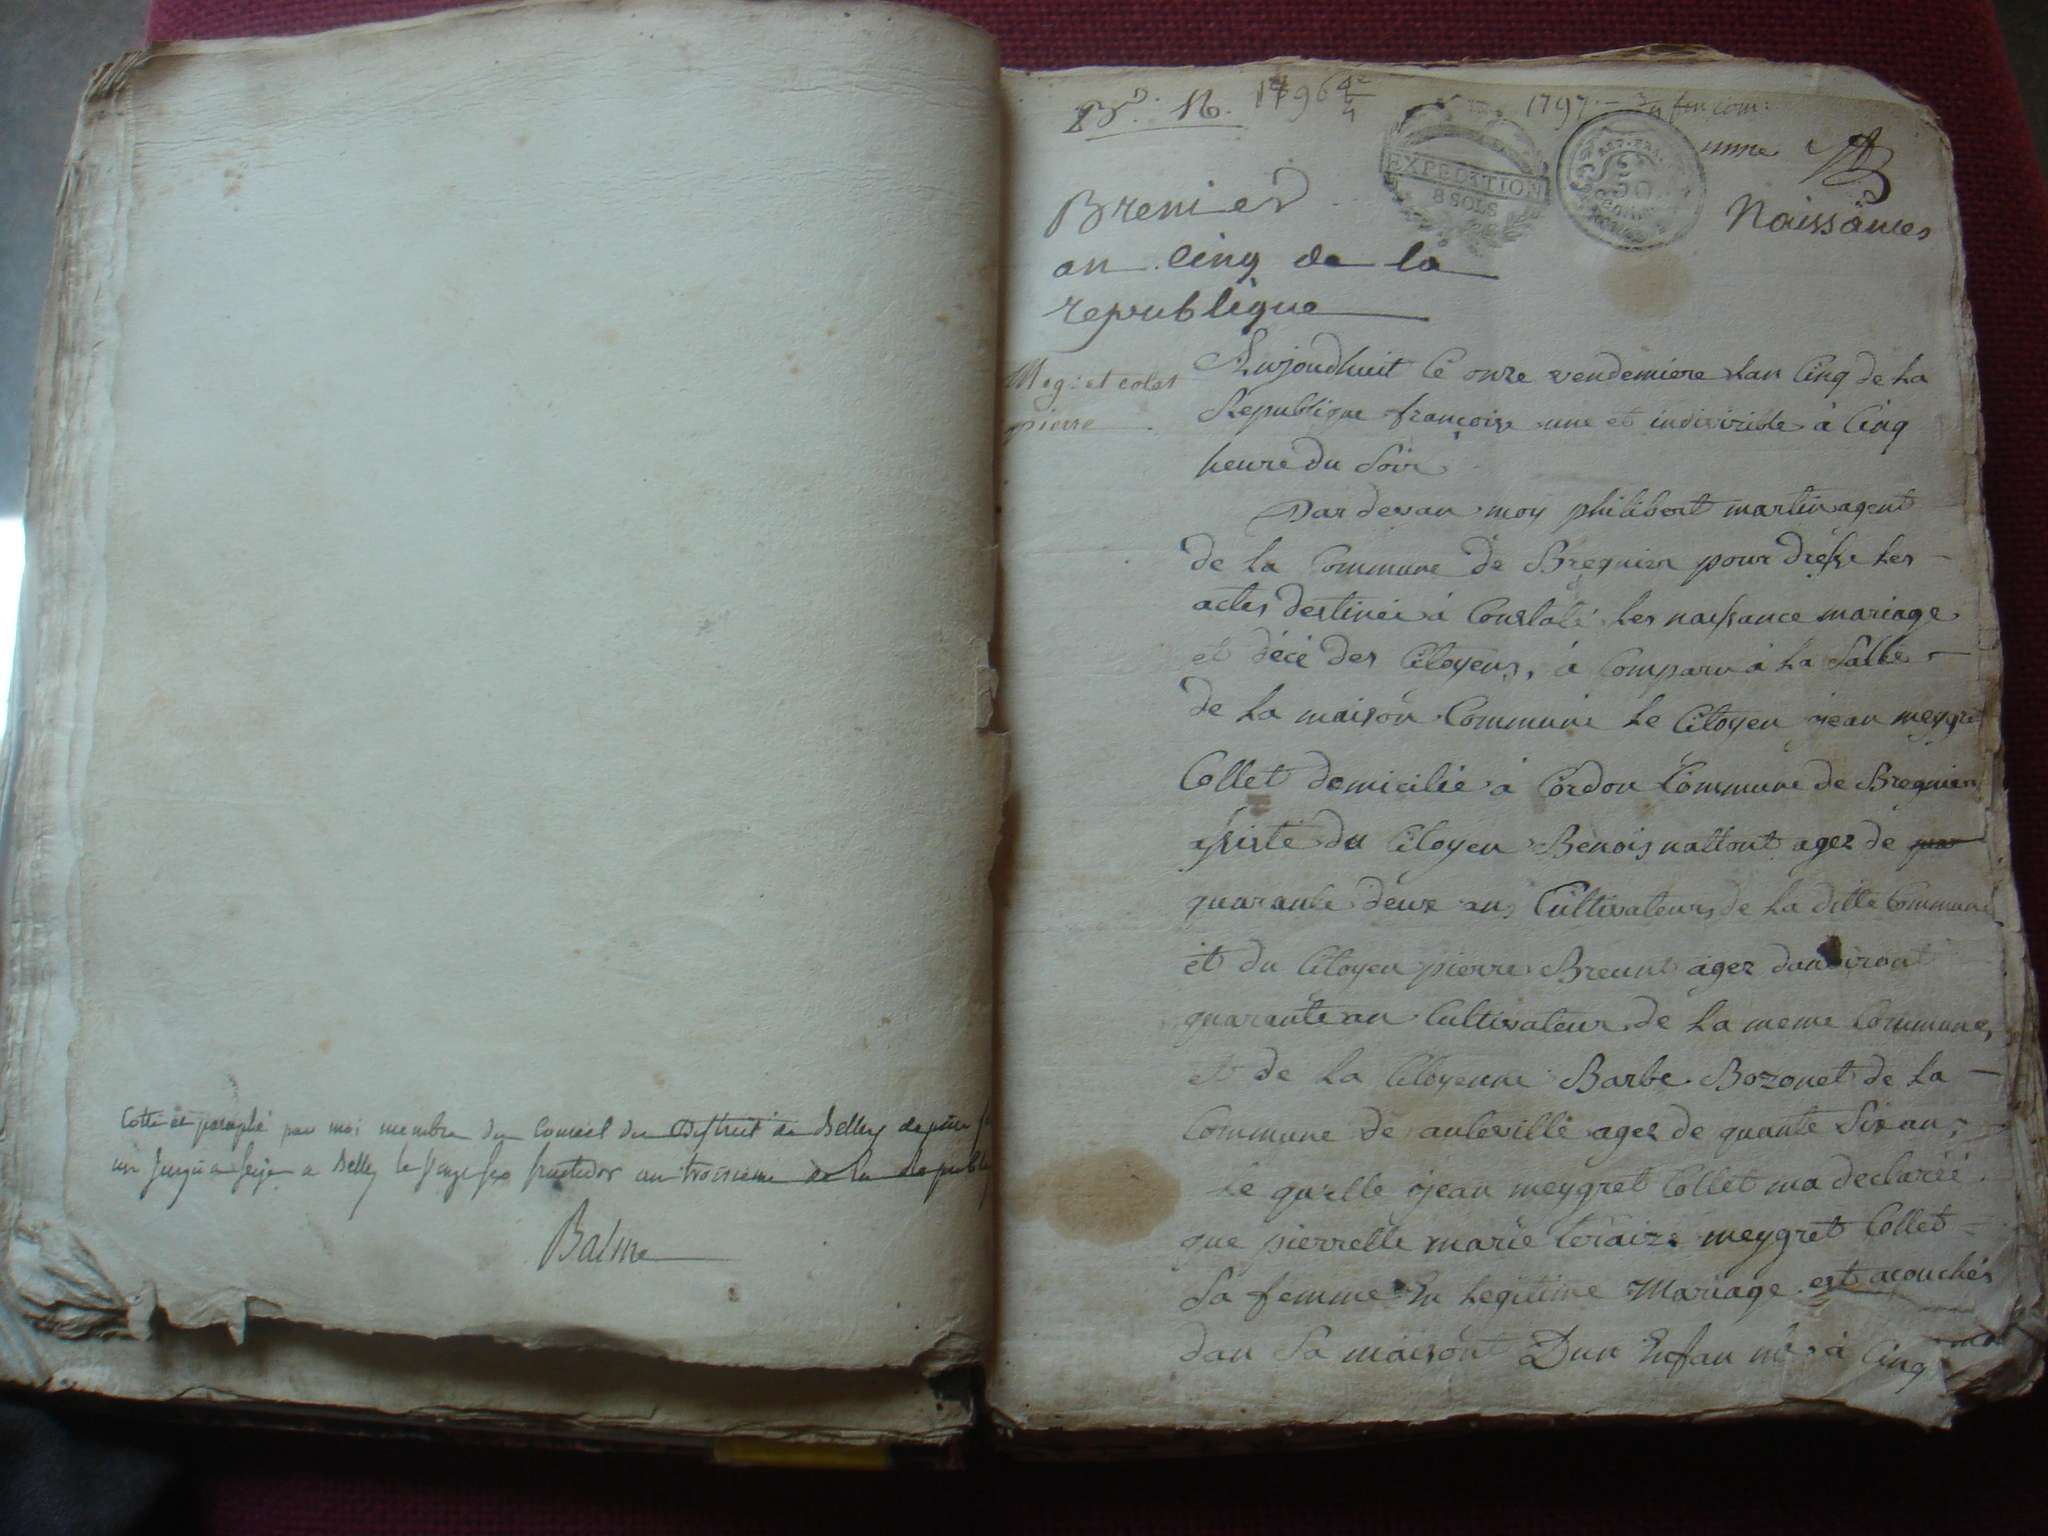 Cotté et paraphé par moi membre du Conseil du District de Belley depuis
un jusqu'a seize a Belley le fructidor an troisieme de la republi
Balme
16. 1796
1797 com:
mune
EXPEDITION
8 SOLS
REP. FRA.
50
Naissances
Brenier
an cinq de la
republique
colet
pierre
Aujourdhuit le onze vendemiere lan Cinq de La
Republique françoise une et indivizible à Cinq
heure du Soir
Par devan moy philibert martin agent
de La Commune de Bregnier pour dresse Les
actes destinée à Constaté Les naissance mariage
et décé des Citoyens, à Comparu à La Salle
de La maison Commune Le Citoyen jean meygret
Collet domicilié à Cordon Commune de Bregnier
assisté du Citoyen Benois nallont agez de
quarante deux ans Cultivateurs de La ditte Commune
et du Citoyen pierre agez danviront
quarante an Cultivateur de La meme Commune,
et de La Citoyenne Barbe Bozonet de La
Commune de auteville agez de quante Six an,
Le quelle jean meygret Collet ma declarée
que pierrette marie teraize meygret Collet
Sa femme En Legitime Mariage est acouchés
dan Sa maisont Dun Enfan à Cinq